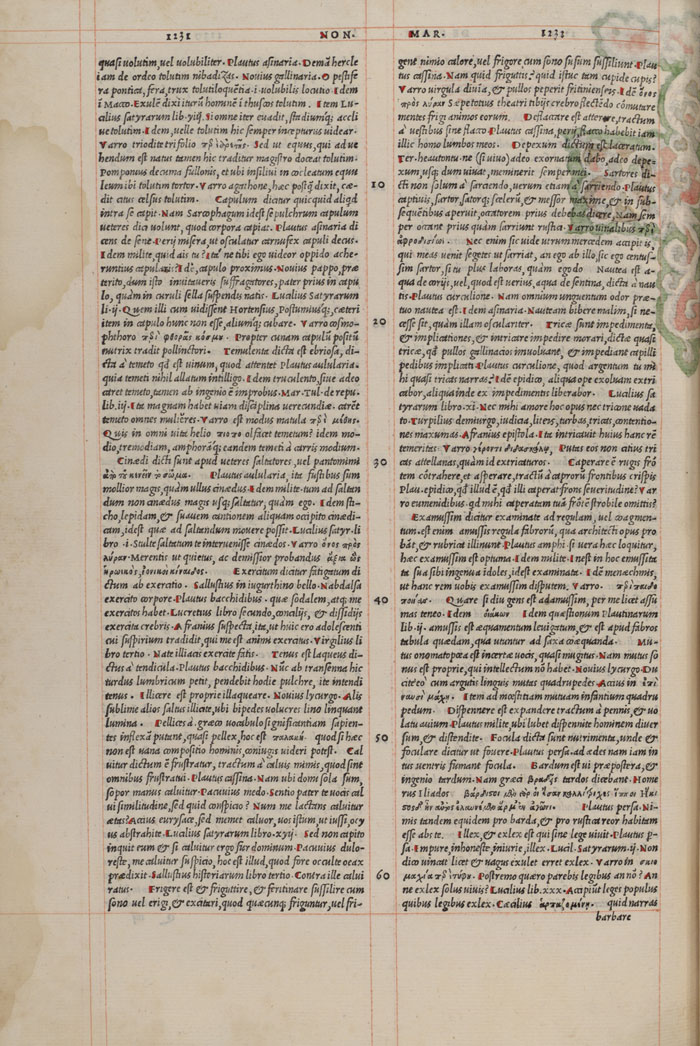 1231 NON.
quasi volutim, uel volubiliter. Plautus asinaria. Demā hercle
iam de ordeo tolutim nibadizas. Nouius gallinaria. O pestife
ra pontica, fera, trux tolutiloquētia .i. uolubilis locutio. Idem
ī Macco. Exulē dixi iturū hominē ī thuscos tolutim. Item Lu-
cilius satyrarum lib. Si omne iter euadit, stadiumq; accli
ue tolutim. Idem, uelle tolutim hic semper incepturus uidear.
Varro triodite trifilio Sed ut equus, qui ad ue
hendum est natus tamen hic traditur magistro doceat tolutim.
Pomponius decuma fullonis, et ubi insiliui in cocleatum equu
leum ibi tolutim tortor. Varro agathone, hæc postq̄ dixit, cæ-
dit citus celsus tolutim. Capulum dicitur quicquid aliqd
intra se capit. Nam Sarcophagum idest sepulchrum capulum
ueteres dici uolunt, quod corpora capiat. Plautus asinaria di
cens de sene. Perij misera, ut osculatur carnufex capuli decus.
Idem milite, quid ais tu? Ita ne tibi ego uideor oppido ache-
runticus Idē, capulo proximus. Nouius pappo, præ
terito, dum isto inuitaueris suffragatores, pater prius in capu
lo, quàm in curuli sella suspendis natis. Lucilius Satyrarum
li. ij. Quem illi cum uidissent Hortensius, Postumiusq;, cæteri
item in capulo hunc non esse, aliumq; cubare. Varro cosmo-
phthoro Propter cunam capulū positū
nutrix tradit pollinctori. Temulenta dicta est ebriosa, di-
cta à temeto qd̄ est uinum, quod attentet. Plautus aulularia.
quia temeti nihil allatum intelligo. Idem truculento, siue adeo
caret temeto, tamen ab ingenio ē improbus. Mar. Tul. de repu.
lib. iij. Ita magnam habet uiam disciplina uerecundiæ. carēt
temeto omnes mulieres. Varro est modus matula
Quis in omni uita helio olfacit temetum? idem mo-
dio, tremodiam, amphoráq; eandem temeti à carris modium.
Cinædi dicti sunt apud ueteres saltatores, uel pantomimi
Plautus aulularia, ita fustibus sum
mollior magis, quàm ullus cinædus. Idem milite. tum ad saltan
dum non cinædus magis usq; saltatur, quàm ego. Idem sti-
cho, lepidam, & suauem cantionem aliquam occipito cinædi-
cam, idest quæ ad saltandum mouere possit. Lucilius satyr. li
bro .i. Stulte saltatum te interuenisse cinædos. Varro
Merentis ut quietus, ac demissior probandus
Exercitum dicitur fatigatum di
ctum ab exercitio. Sallustius in iugurthino bello. Nabdalsa
exercito corpore. Plautus bacchidibus. quæ sodalem, atq; me
exercitos habet. Lucretius libro secundo, concilijs, & dissidijs
exercita crebris. Afranius suspecta, ita, ut huic ero adolescenti
cui suspirium tradidit, qui me est animi exercitus. Virgilius li
bro tertio. Nate iliacis exercite fatis. Tenus est laqueus di-
ctus à tendicula. Plautus bacchidibus. Nūc ab transenna hic
turdus lumbricum petit, pendebit hodie pulchre, ita intendi
tenus. Illicere est proprie illaqueare. Nouius lycurgo. Alis
sublime alios saltus illicite, ubi bipedes uolucres lino linquant
lumina. Pellices à græco uocabulo significantiam sapien-
tes inflexā putent, quasi pellex, hoc est quod si hæc
non est uana compositio hominis, coniugis uideri potest. Cal
uitur dictum ē frustratur, tractum à caluis mimis, quod sint
omnibus frustratui. Plautus cassina. Nam ubi domi sola sum,
sopor manus caluitur. Pacuuius medo. Sentio pater te uocis cal
ui similitudine, sed quid conspicio? Num me lactans caluitur
ætas? Accius eurysace, sed memet caluor, uos istum, ut iussi, ocy
us abstrahite. Lucilius Satyrarum libro. xvij. Sed non capito
inquit eum & si caluitur ergo fior dominum. Pacuuius dulo-
reste, me caluitur suspicio, hoc est illud, quod fore occulte oeax
prædixit. Sallustius historiarum libro tertio. Contra ille calui
ratus. Erigere est & friguttire, & feritinare sussilire cum
sono uel erigi, & excitari, quod quæcunq; friguntur, uel fri-
10
20
30
40
50
60
MAR. 1232
gent nimio calore, uel frigore, cum sono susum sussiliunt. Plau
tus cassina. Nam quid friguttis? quid istuc tam cupide cupis?
Varro uirgula diuina, & pullos peperit fritinienteis. Idē
Sæpe totius theatri tibijs crebro flectēdo cōmutare
mentes frigi animos eorum. Deflaccare est atterere, tractum
à uestibus sine flacco. Plautus cassina, perij, flacco habebit iam
illic homo lumbos meos. Depexum dictum est laceratum.
Ter. heautontu. ne (si uiuo) adeo exornatum dabo, adeo depe-
xum, usq; dum uiuat, meminerit semper mei. Sartores di-
cti non solum à sarciendo, uerum etiam à sarriendo. Plautus
captiuis, sartor, satorq; scelerū, & messor maxime, & in sub-
sequētibus aperuit, occatorem prius debebas dicere. Nam sem
per occant prius quàm sarriunt rustici. Varro uirtalibus
Nec enim sic uide utrum mercedem accipit is,
qui meas uenit segetes ut sarriat, an ego ab illo, sic ego centus-
sim sartor, si tu plus laboras, quàm ego do Nautea est a-
qua de corijs, uel, quod est uerius, aqua de sentina, dicta à nau
tis. Plautus curculione. Nam omnium unguentum odor præ-
tuo nautea est. Idem asinaria. Nauteam bibere malim, si ne-
cesse sit, quàm illam oscularier. Tricæ sunt impedimenta,
& implicationes, & intricare impedire morari, dicta quasi
tricæ, qd̄ pullos gallinacios inuoluant, & impediant capilli
pedibus implicati. Plautus curculione, quod argentum tu mi
hi quasi tricas narras? Idē epidico, aliqua ope exoluam extri
cabor, aliqua inde ex impedimentis liberabor. Lucilius sa
tyrarum libro. xi. Nec mihi amore hoc opus nec tricone uada
to. Turpilius demiurgo, iudicia, litens, turbas, tricas, contentio-
nes maxumas. Afranius epistola. Ita intricauit huius hanc rē
temeritas. Varro Putas eos non citius tri
cas attellanas, quàm id extricaturos. Caperare ē rugis frō
tem cōtrahere, et asperare, tractū à caprorū frontibus crispis
Plau. epidico, qd̄ illud ē, qd̄ illi caperat frons seueritudine? Var
ro eumenidibus. qd̄ mihi caperatam tuā frōtē strobile omittis?
Examussim dicitur examinate ad regulam, uel coagmen-
tum. est enim amussis regula fabrorū, qua architecti opus pro
bāt, & rubrica illinunt. Plautus amphi. si uera hæc loquitur,
hæc examussim est optuma. Idem milite. Inest in hoc emussita
ta sua sibi ingenua idoles, idest examinate. Idē menæchmis,
ut hanc rem uobis examussim disputem. Varro
Quare si diu gens est adamussim, per me licet assu
mas teneo. Idem Idem quæstionum Plautinarum
lib. ij. amussis est æquamentum leuigatum, & est apud fabros
tabula quædam, qua utuntur ad saxa coæquanda. Mu-
tus onomatopœa est incertæ uocis, quasi mugitus. Nam mutus so
nus est proprie, qui intellectum nō habet. Nouius lycurgo. Du
cite eo cum argutis linguis mutas quadrupedes. Accius in
Item ad mœstitiam mutuam infantium quadru
pedum. Dispennere est expandere tractum à pennis, & uo
latu auium. Plautus milite, ubi lubet dispennite hominem diuer
sum, & distendite. Focula dicta sunt nutrimenta, unde &
foculare dicitur ut fouere. Plautus persa. ad ædes nam iam in
tus uentris fumant focula. Bardum est ut præpostera, &
ingenio tardum. Nam græci tardos dicebant. Home
rus Iliados
Plautus persa. Ni-
mis tandem equidem pro barda, & pro rustica reor habitam
esse abs te. Illex, & exlex est qui sine lege uiuit. Plautus p̄-
sa. Impure, inhoneste, iniurie, illex. Lucil. Satyrarum. ij. Non
dico uincat licet & uagus exulet erret exlex. Varro in
Postremo quæro parebis legibus an nō? An
ne exlex solus uiuis? Lucilius lib. xxx. Accipiūt leges populus
quibus legibus exlex. Cæcilius quid narras
barbare